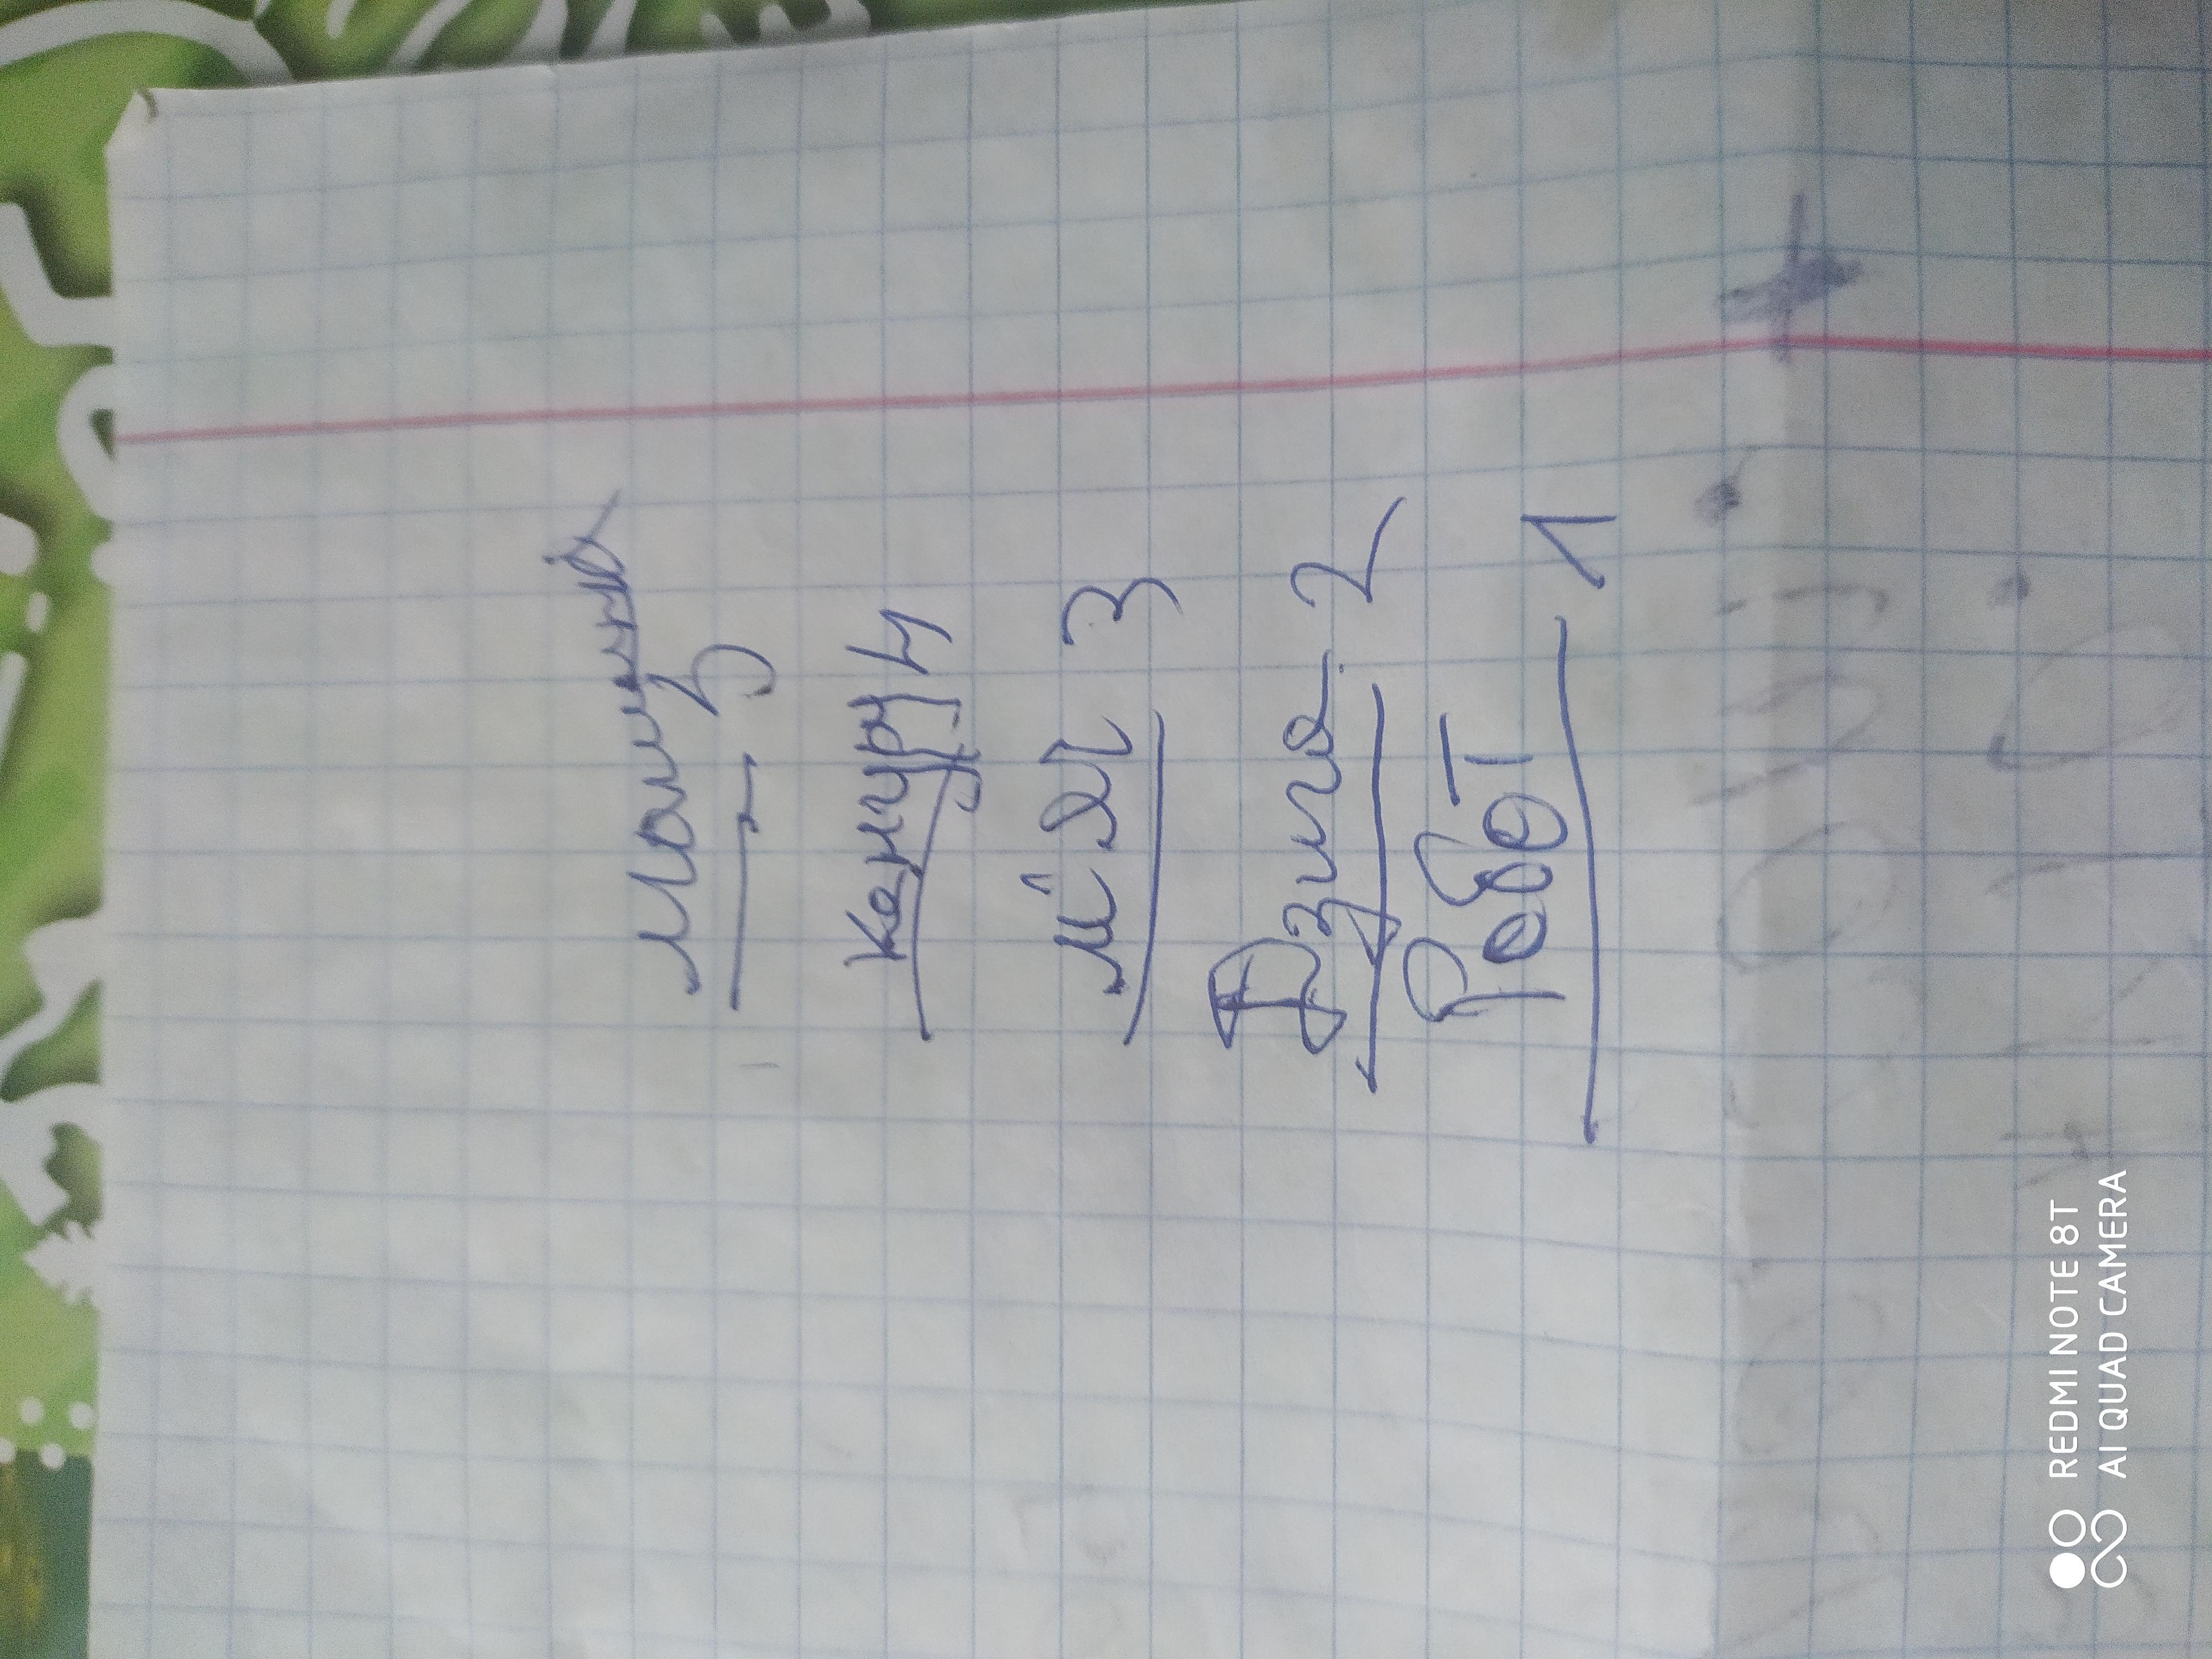 машинка
5
кенгуру 4
мʼяч 3
Дзиґа 2
Робот 1
REDMI NOTE 8T
AI QUAD CAMERA